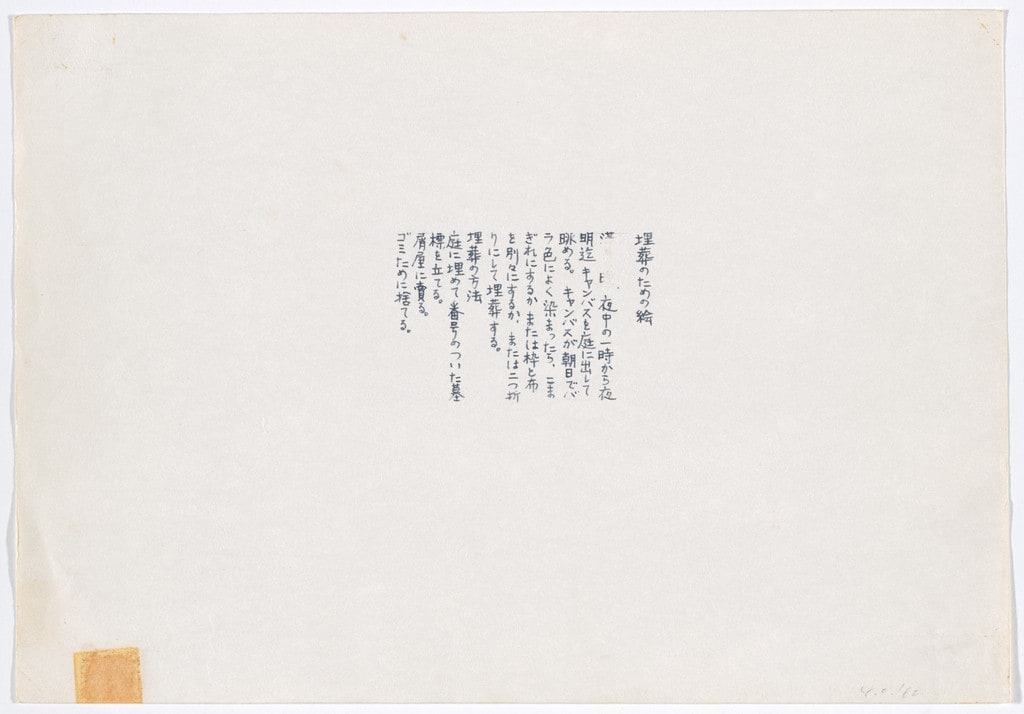 埋葬のための絵
満 月 夜中の一時から夜
明迄 キャンバスを庭に出して
眺める。 キャンバスが朝日でバ
ラ色によく染まったら、こま
ぎれにするか または枠と布
を別々にするか、または二つ折
りにして埋葬する。
埋葬の方法
庭に埋めて番号のついた墓
標を立てる。
屑屋に賣る。
ゴミために捨てる。
Y.O. '62